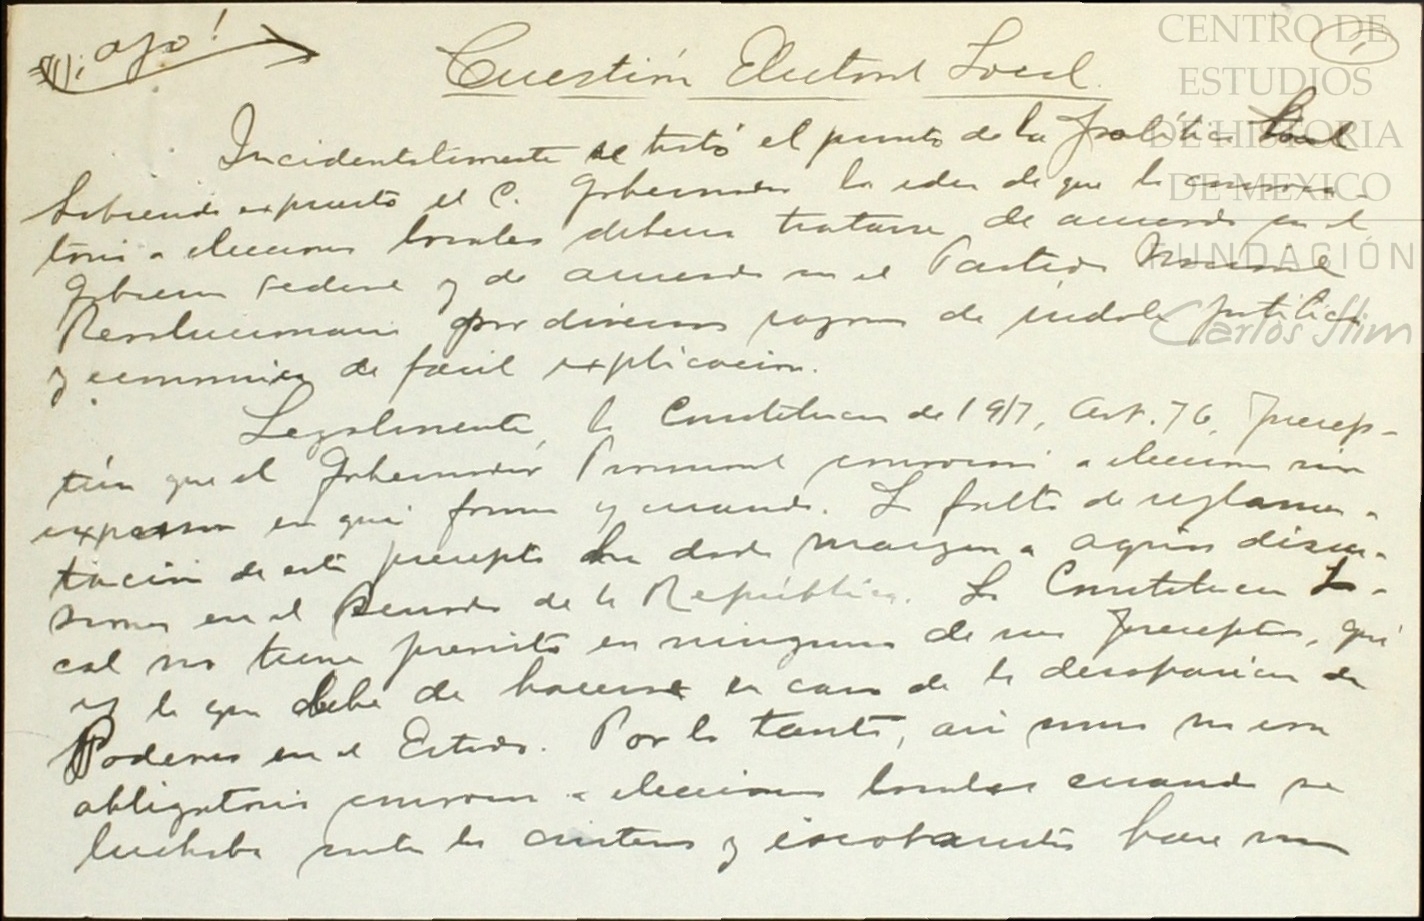 ¡ojo!
1
Cuestión Electoral Local.
Incidentalmente se trató el punto de la política local
habiendo expuesto el C. Gobernador la idea de que la convoca-
toria a elecciones locales debería tratarse de acuerdo con el
Gobierno Federal y de acuerdo con el Partido Nacional
Revolucionario por diversas razones de índole política
y económica de fácil explicación.
Legalmente, la Constitución de 1917, Art. 76, precep-
túa que el Gobernador Provisional convocará a elecciones sin
expresar en qué forma y cuando. La falta de reglamen-
tación de este precepto ha dado margen a agrias discu-
siones en el Senado de la República. La Constitución Lo-
cal no tiene previsto en ninguno de sus preceptos, qué
es lo que debe de hacerse en caso de la desaparición de
Poderes en el Estado. Por lo tanto, así como no era
obligatorio convocar a elecciones locales cuando se
luchaba contra los cristeros y escobaristas hace un
CENTRO DE
ESTUDIOS
DE HISTORIA
DE MÉXICO
FUNDACIÓN
Carlos Slim